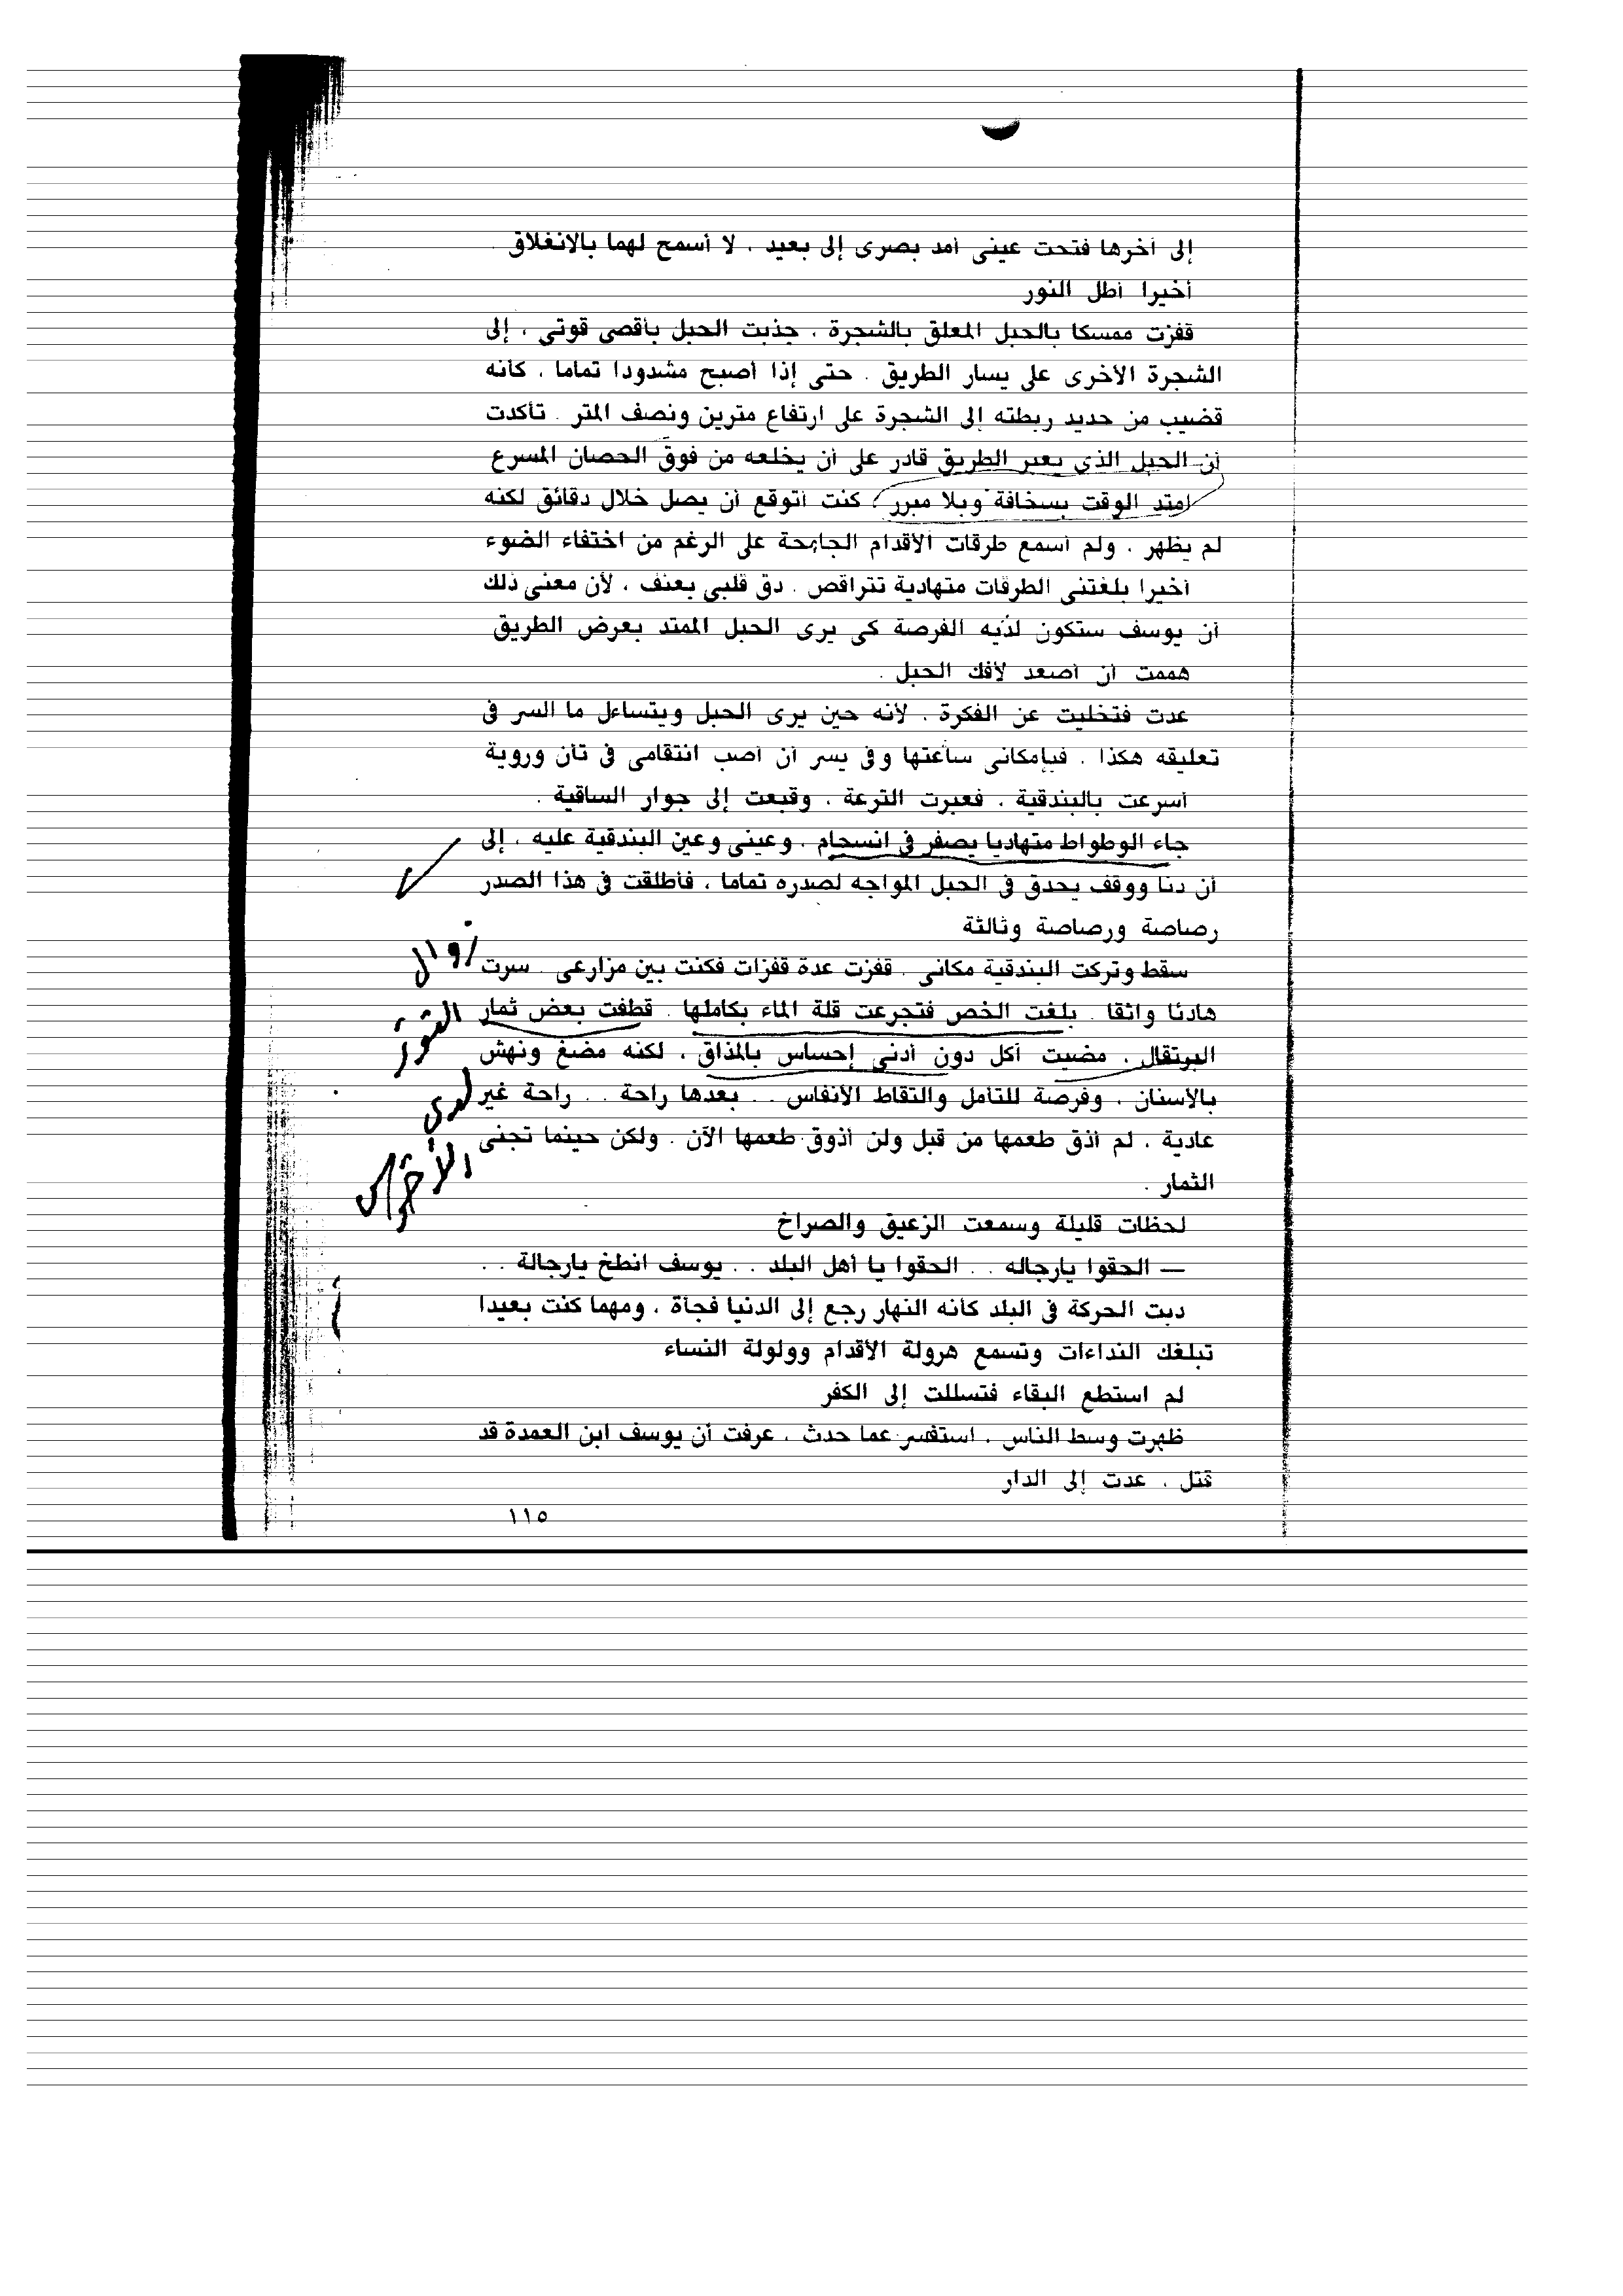 إلى أخرها فتحت عينى أمد بصرى إلى بعيد . لا أسمح لهما بالانغلاق .
أخيرا أطل النور
قفزت ممسكا بالحبل المعلق بالشجرة . جذبت الحبل بأقصى قوتى ، إلى
الشجرة الأخرى على يسار الطريق . حتى إذا أصبح مشدودا تماما ، كأنه
قضيب من حديد ربطته إلى الشجرة على ارتفاع مترين ونصف المتر . تأكدت
أن الحبل الذي يعبر الطريق قادر على أن يخلعه من فوق الحصان المسرع
امتد الوقت بسخافة وبلا مبرر ، كنت أتوقع أن يصل خلال دقائق لكنه
لم يظهر . ولم أسمع طرقات الأقدام الجامحة على الرغم من اختفاء الضوء
أخيرا بلغتنى الطرقات متهادية تتراقص . دق قلبى بعنف ، لأن معنى ذلك
أن يوسف ستكون لديه الفرصة كى يرى الحبل الممتد بعرض الطريق
هممت أن أصعد لأفك الحبل .
عدت فتخليت عن الفكرة . لأنه حين يرى الحبل ويتساءل ما السر فى
تعليقه هكذا . فبإمكانى ساعتها وفى يسر أن أصب انتقامى فى تأن وروية
أسرعت بالبندقية . فعبرت الترعة . وقبعت إلى جوار الساقية .
جاء الوطواط متهاديا يصفر فى انسجام . وعينى وعين البندقية عليه . إلى
أن دنا ووقف يحدق فى الحبل المواجه لصدره تماما ، فأطلقت فى هذا الصدر
رصاصة ورصاصة وثالثة
سقط وتركت البندقية مكانى . قفزت عدة قفزات فكنت بين مزارعى . سرت
هادئا واثقا . بلغت الخص فتجرعت قلة الماء بكاملها . قطفت بعض ثمار
البرتقال . مضيت أكل دون أدنى إحساس بالمذاق ، لكنه مضغ ونهش
بالأسنان . وفرصة للتأمل والتقاط الأنفاس . . بعدها راحة . . راحة غير
عادية . لم أذق طعمها من قبل ولن أذوق طعمها الآن . ولكن حينما تجنى
الثمار .
لحظات قليلة وسمعت الزعيق والصراخ
— الحقوا يارجاله . . الحقوا يا أهل البلد . . يوسف انطخ يارجالة . .
دبت الحركة فى البلد كأنه النهار رجع إلى الدنيا فجأة . ومهما كنت بعيدا
تبلغك النداءات وتسمع هرولة الأقدام وولولة النساء
لم استطع البقاء فتسللت إلى الكفر
ظهرت وسط الناس . استفسر عما حدث . عرفت أن يوسف ابن العمدة قد
قتل . عدت إلى الدار
١١٥
زوال
التوتر
لدى